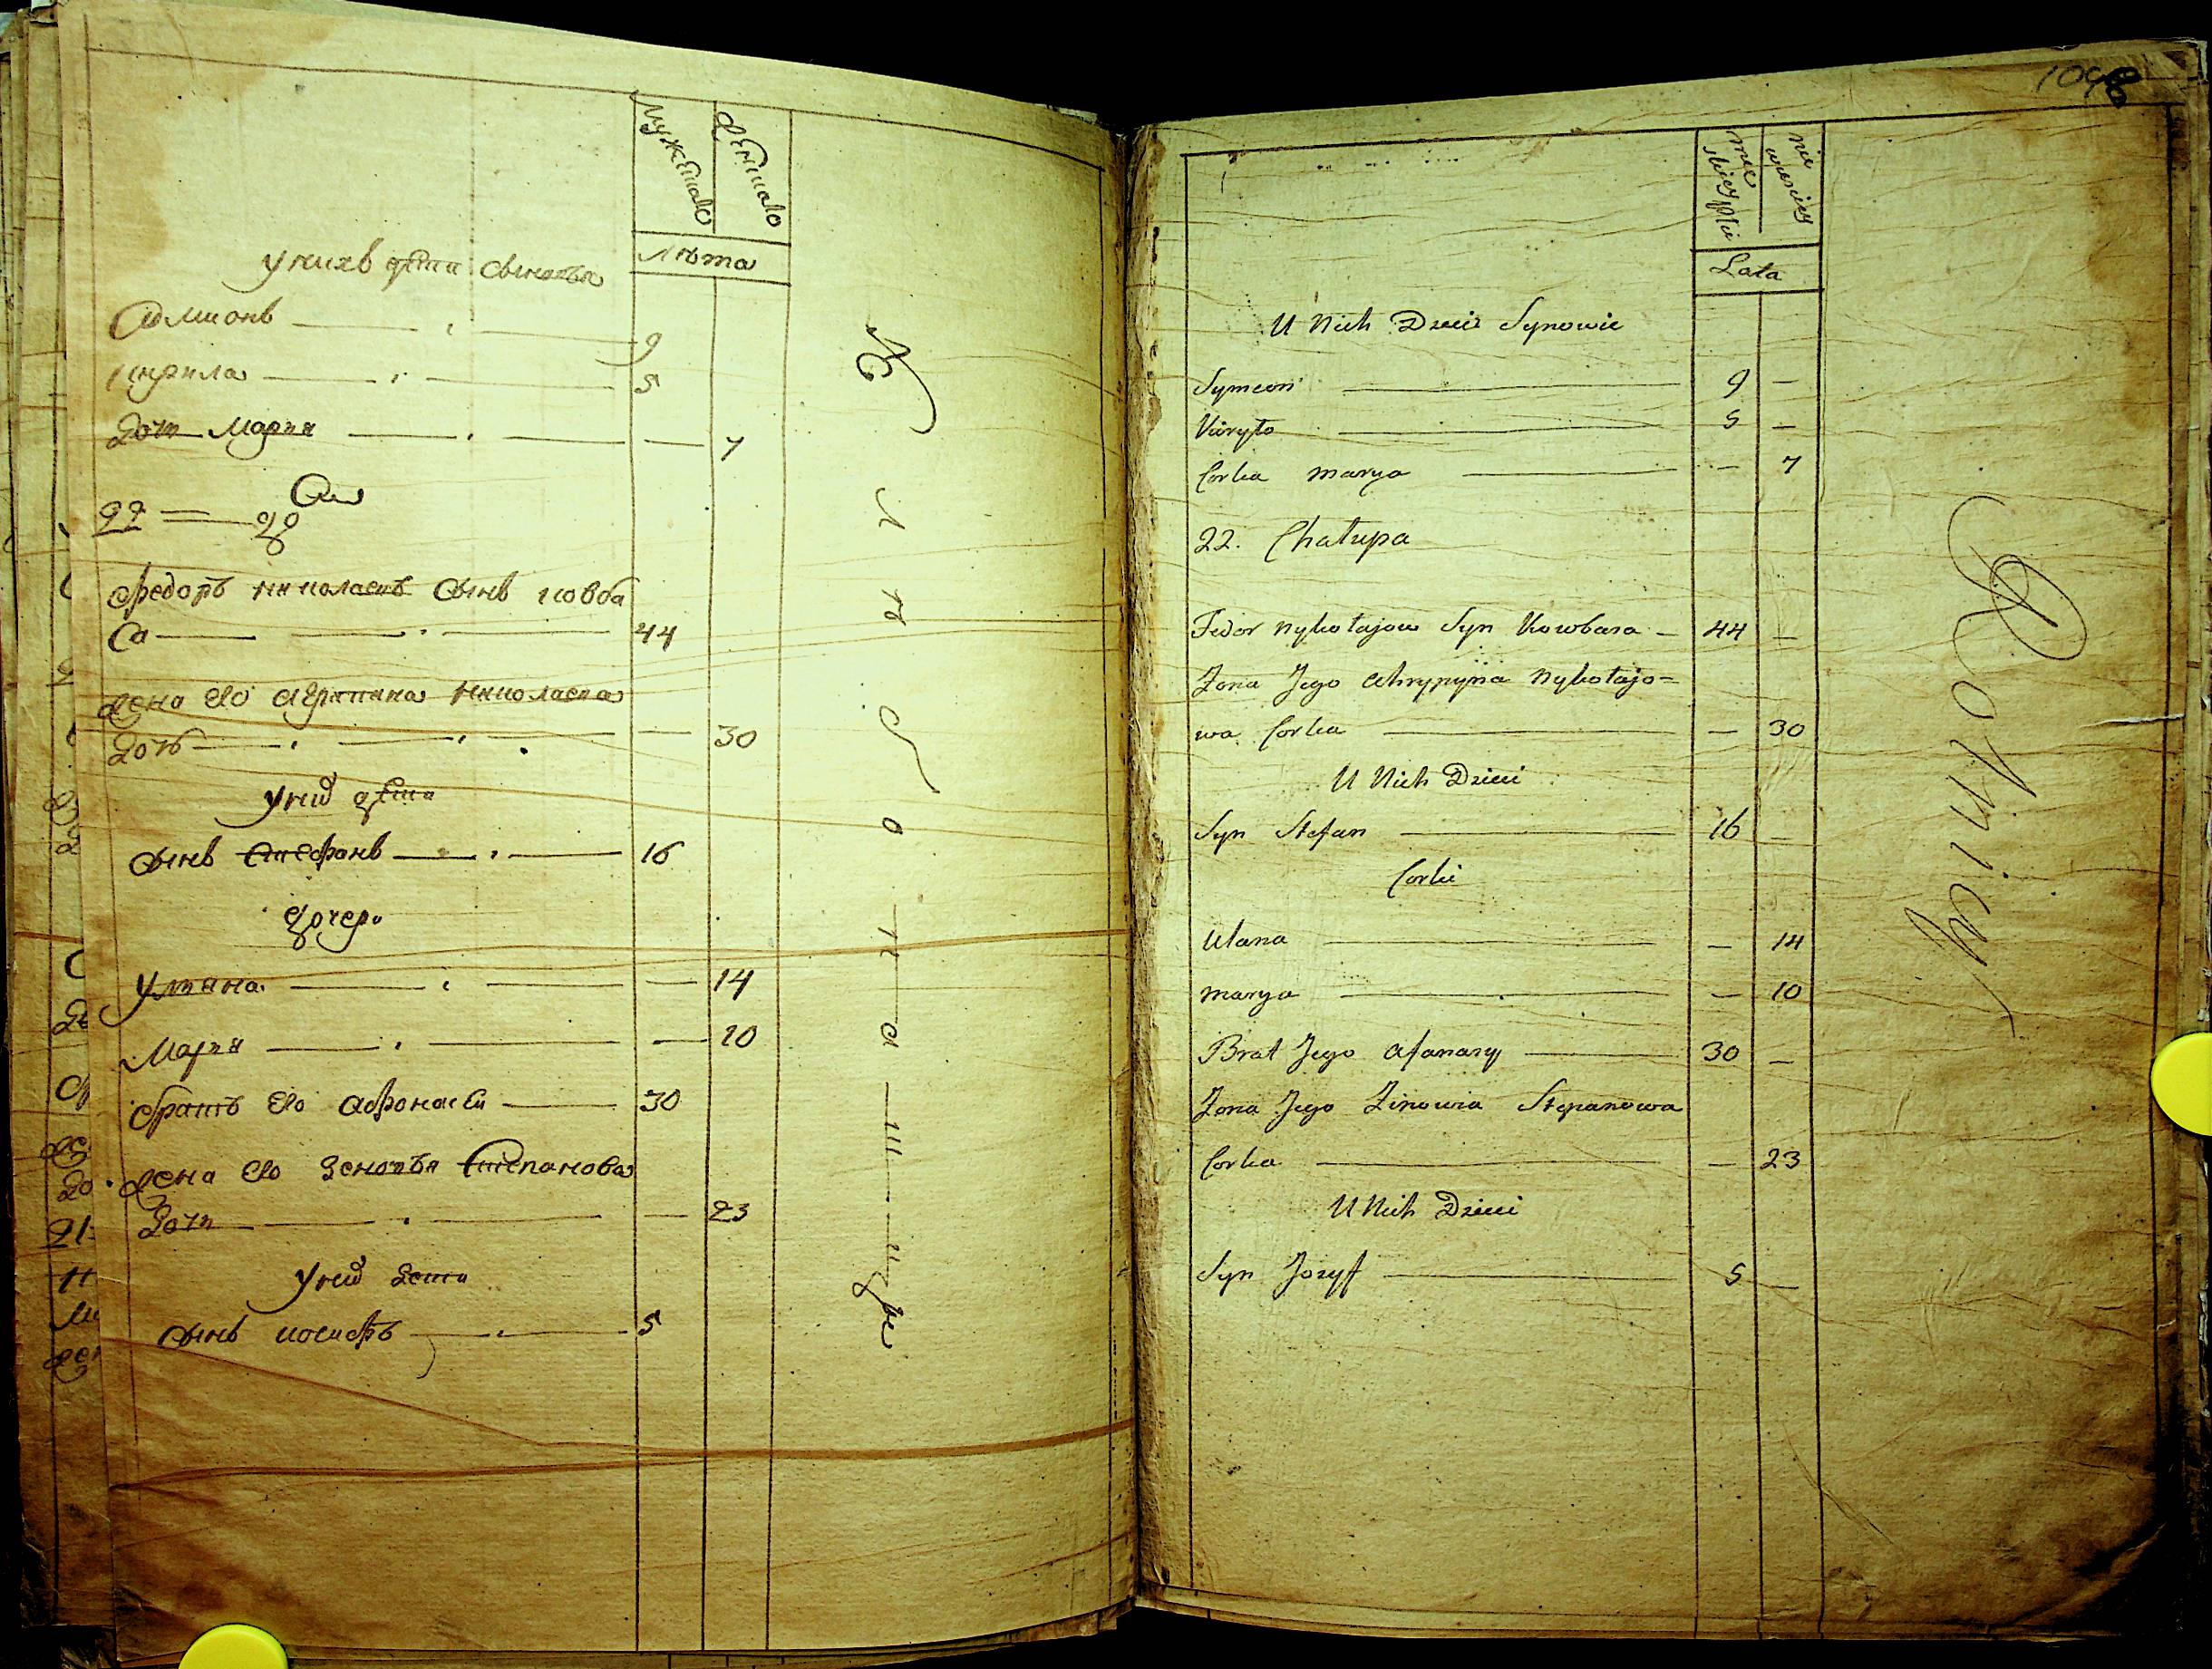 Мужеска
Женска
Лѣта
У нихъ дѣти сыновья
Симионъ 9
Кирила 5
Дочь Мария 7
22
Федоръ Николаевъ сынъ Ковба
са 44
Жена его Агрипина Николаева
Дочь 30
У них дети
Сынъ Стефанъ 16
Дочери
Уляна 14
Мария 10
Братъ его Афонасей 30
Жена его Зеновъя Степанова
Дочь 23
У них дети
Сынъ Иосифъ 5
1098
męskiey płci
Lata
U Nich Dzieci Synowie
Symeon 9 —
Kiryło 5 —
Corka Marya — 7
22. Chałupa
Fedor Nykołajow Syn Kowbasa — 44 —
Zona Jego Ahrypyna Nykołajo=
wa Corka — 30
U Nich Dzieci
Syn Stefan 16 —
Corki
Ulana — 14
Marya — 10
Brat Jego Afanasy 30 —
Zona Jego Zinowia Stepanowa
Corka — 23
U Nich Dzieci
Syn Jozyf 5 —
Rolnicy